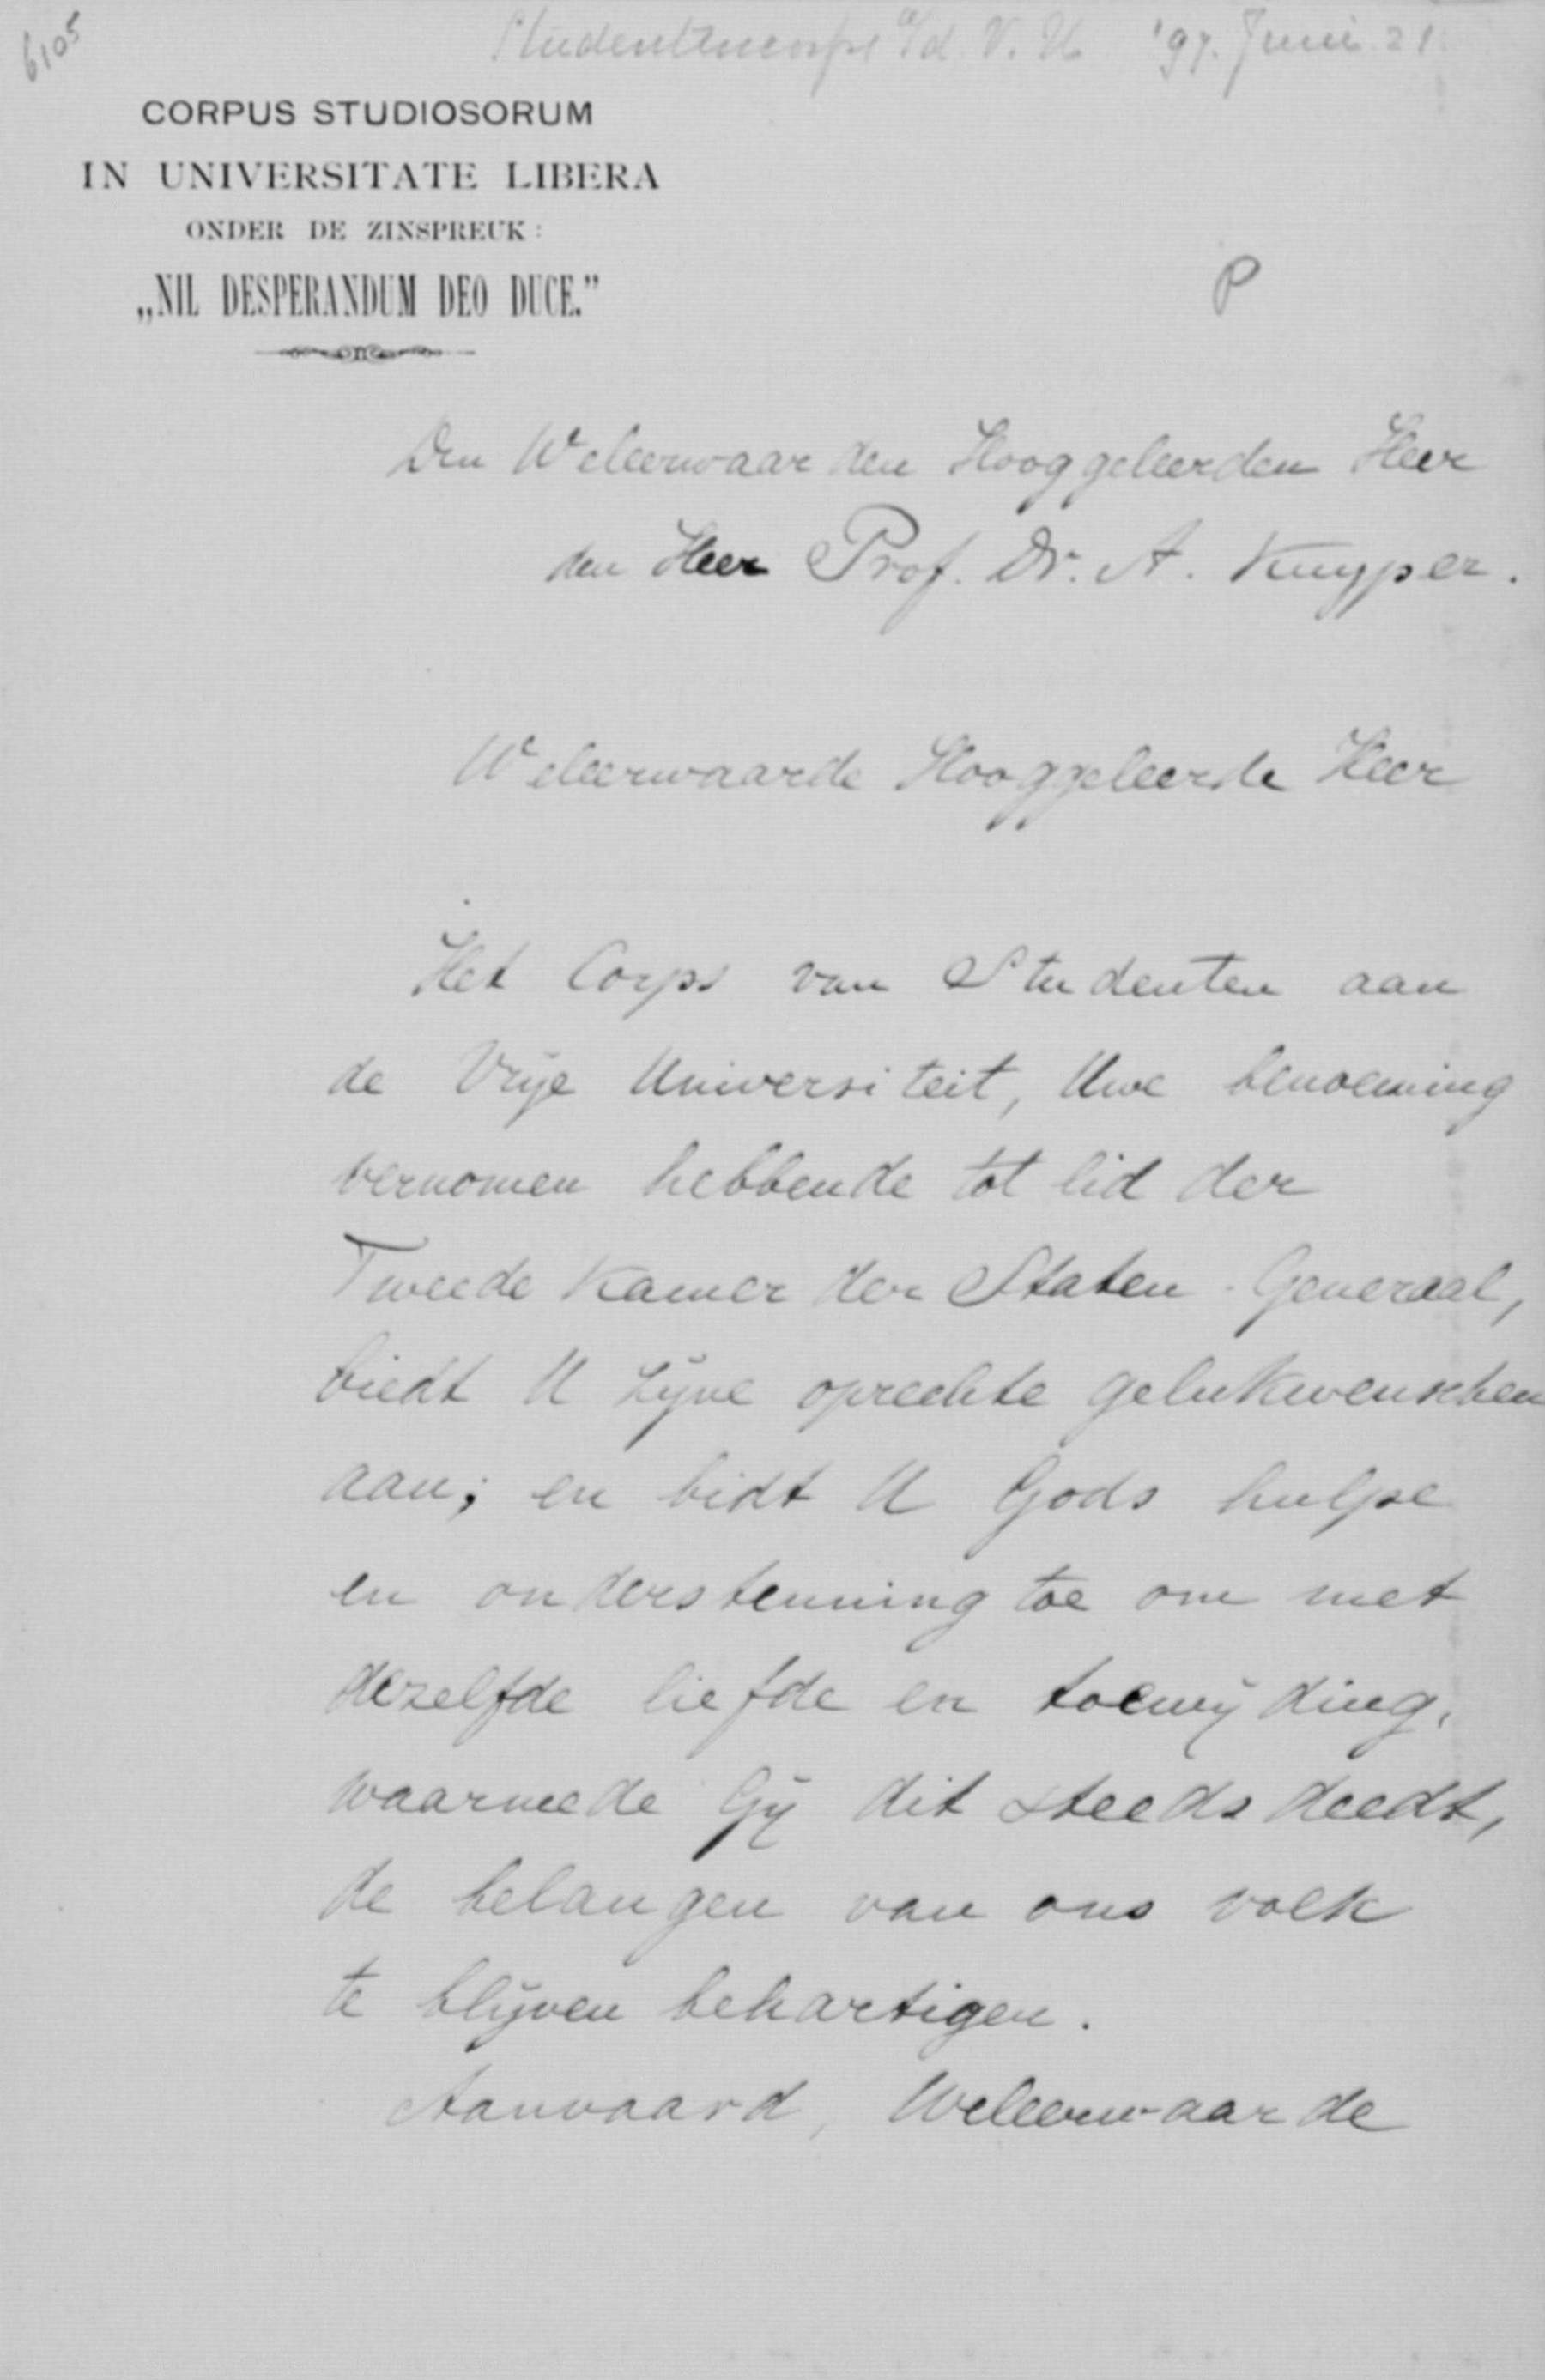 6105
Studentencorps a/d. V. U. '97. Juni 21
CORPUS STUDIOSORUM
IN UNIVERSITATE LIBERA
ONDER DE ZINSPREUK:
„NIL DESPERANDUM DEO DUCE.”
P
Den Weleerwaarden Hooggeleerden Heer
den Heer Prof. Dr. A. Kuyper.
Weleerwaarde Hooggeleerde Heer
Het Corps van Studenten aan
de Vrije Universiteit, Uwe benoeming
vernomen hebbende tot lid der
Tweede Kamer der Staten-Generaal,
biedt U zijne oprechte gelukwenschen
aan; en bidt U Gods hulpe
en ondersteuning toe om met
dezelfde liefde en toewijding,
waarmede Gij dit steeds deedt,
de belangen van ons volk
te blijven behartigen.
Aanvaard, Weleerwaarde